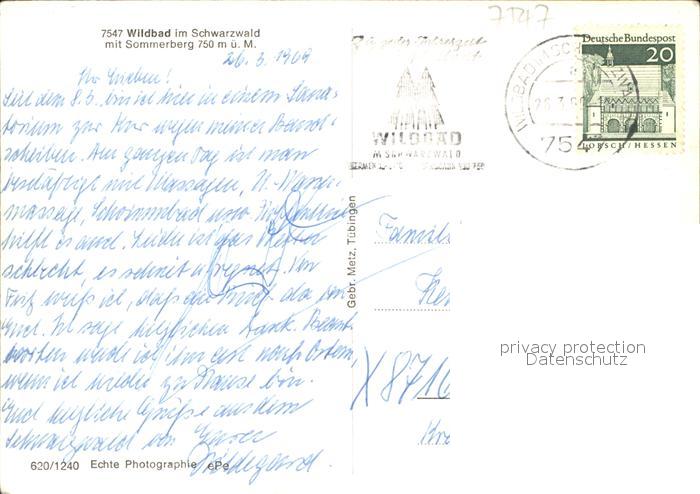 7547 Wildbad im Schwarzwald
mit Sommerberg 750 m ü. M.
26.3.1969
Ihr Lieben!
Seit dem 8.3. bin ich hier in einem Sana-
torium zur Kur wegen meiner Band-
scheiben. Am ganzen Tag ist man
beschäftigt mit Massagen, U.-Wasser-
massage, Schwimmbad usw.
hilft es auch. Leider ist das Wetter
schlecht, es schneit u. regnet. Von
weiß ich, daß da von
Euch. Ich sage herzlichen Dank. Beant-
worten werde ich ihn erst nach Ostern,
wenn ich wieder zu Hause bin.
Euch herzliche Grüße aus dem
Schwarzwald von Eurer
Hildegard.
620/1240 Echte Photographie ePe
Gebr. Metz, Tübingen
7547
WILDBAD
IM SCHWARZWALD
Deutsche Bundespost
20
LORSCH/HESSEN
754
Famili
8716
privacy protection
Datenschutz